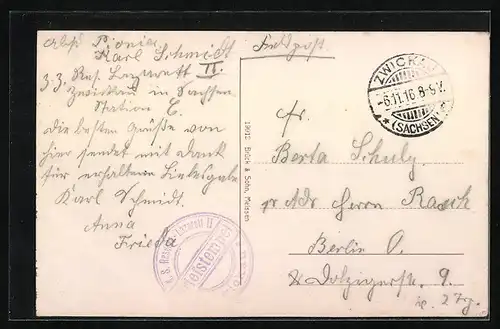 Abs. Pionier
Karl Schmidt
z.Z. Res. Lazarett II.
Zwickau in Sachsen
Station C.
Die besten Grüße von
hier sendet mit Dank
für erhaltene Liebesgabe
Karl Schmidt.
Anna
Frieda
Feldpost
ZWICKAU
-6.11.16.8-9V.
* (SACHSEN)
Fr.
Berta Schulz
pr Adr Herrn Rasch
Berlin O.
Dolzigerstr. 9
v. 2 Trg.
19012 Brück & Sohn, Meissen
K. S. Reserve-Lazarett II